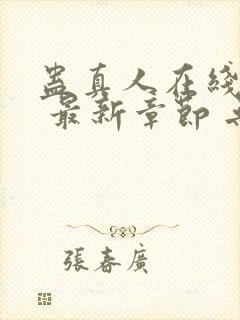 蛊真人在线
最新章節
張春廣